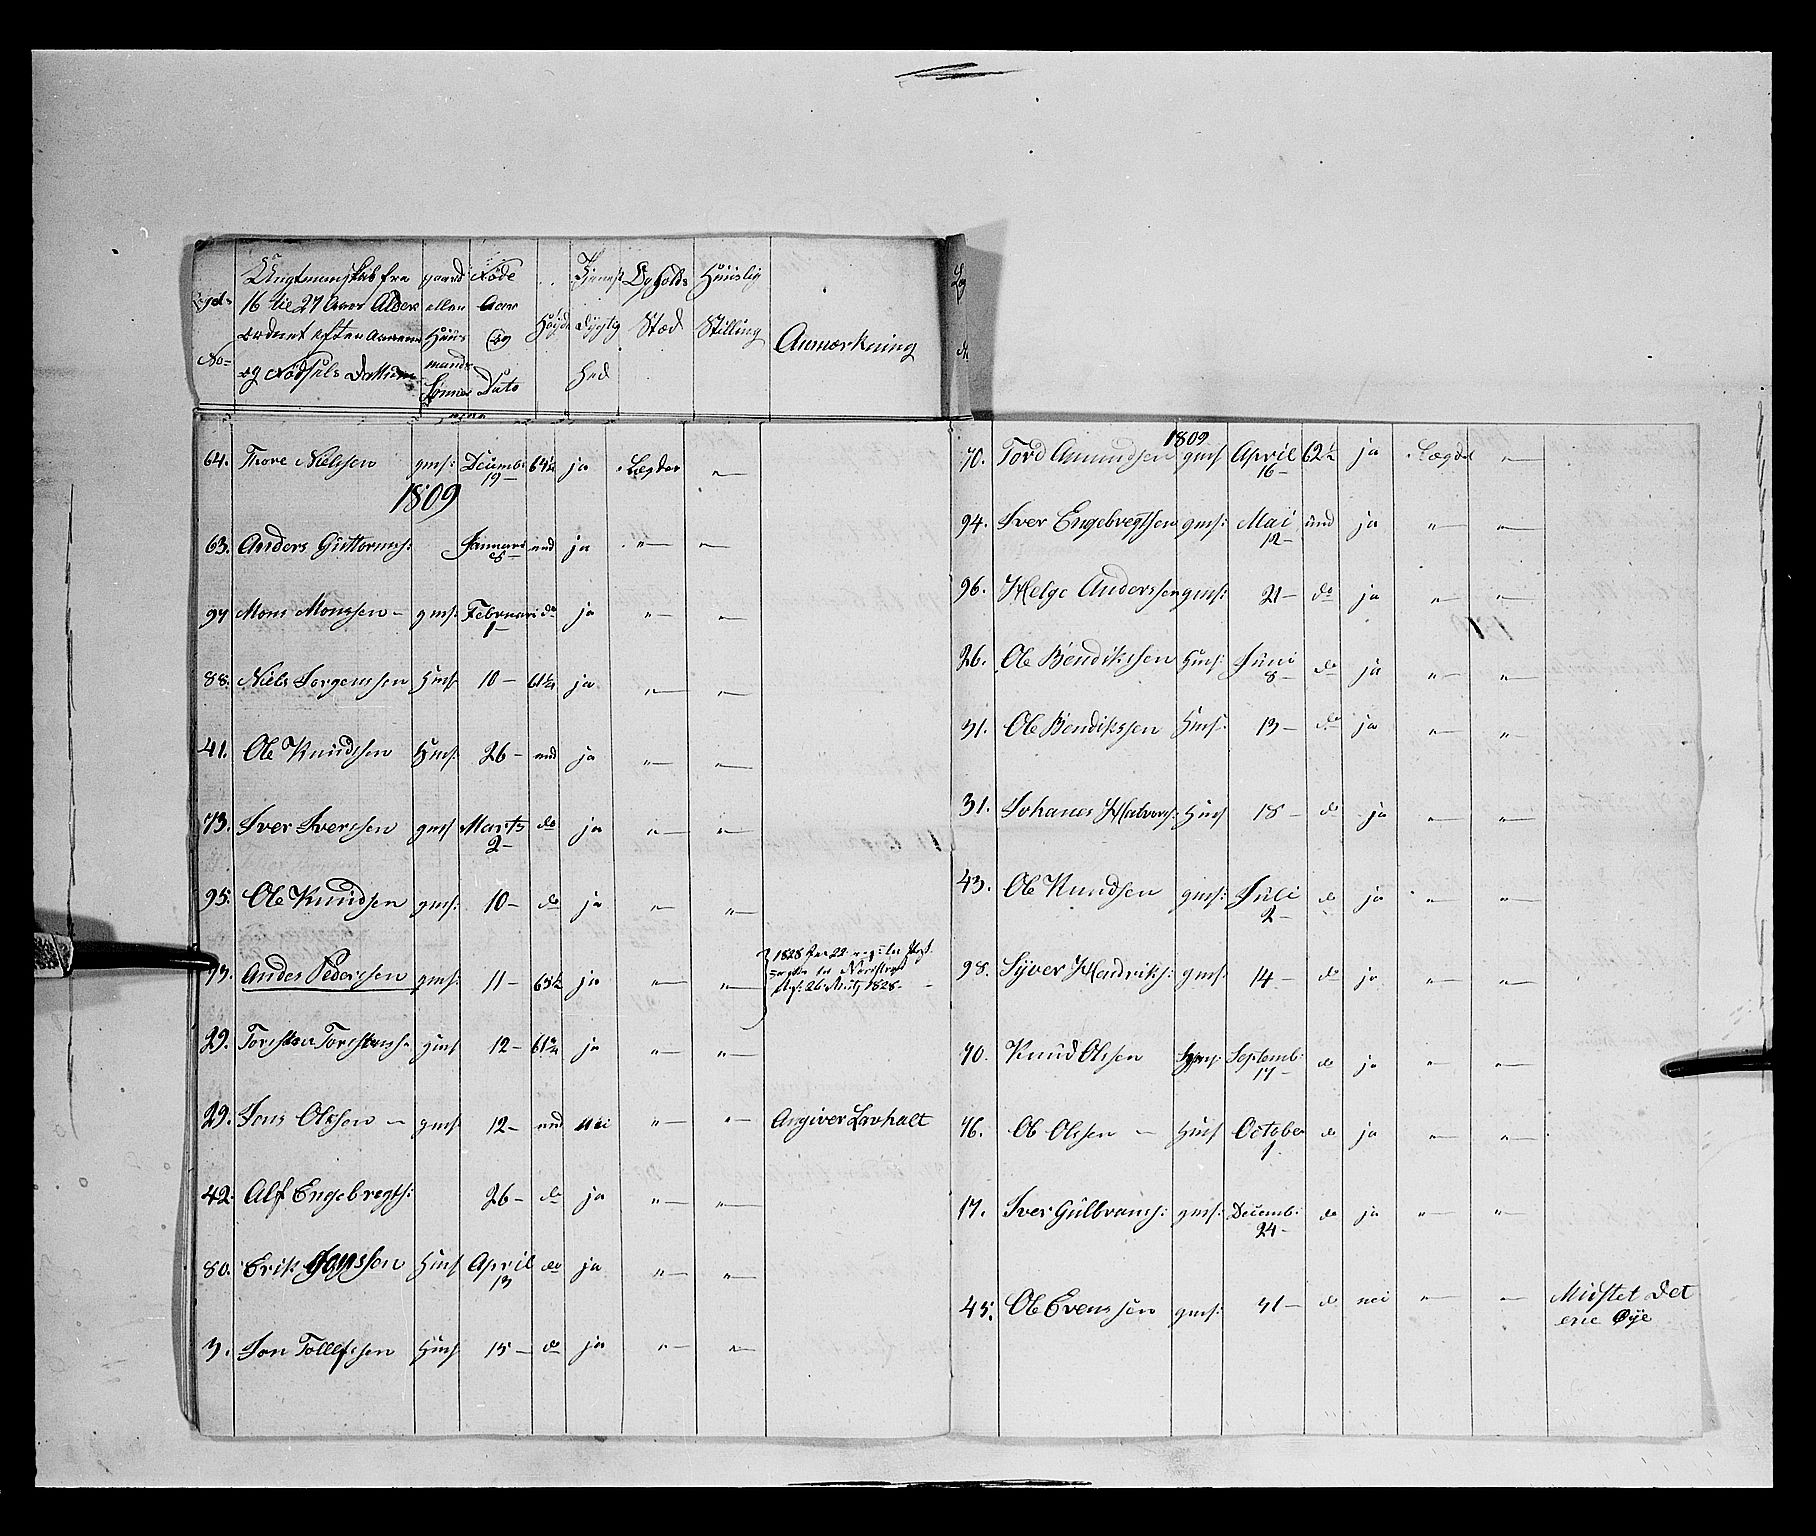 Lægds No= Ungtmanskab fra 16 til 27 Aars Alder ordnet efter Aarene og Födsels Dattum gaard eller Huus mands Sönner Föde Aar og Dato Höyde Tjenest Dygtig hed Opholds Stæd Huuslig Stilling Anmærkning
64. Thore Nielssen gms: Decemb: 19 — 64½ ja Lægdet " —
1809
63. Anders Guttorms: Januari 8 — und ja " — " —
97 Mons Monssen — gms: Februari 1 — do ja " — " —
88. Niels Jorgenssen Hms: 10 — 61¼ ja " — " —
41. Ole Knudssen Hms: 26 — und ja " — " —
73. Iver Iverssen gms Marts 2 — do ja " — " —
95. Ole Knudssen gms: 10 — do ja " — " —
73. Andes Pederssen gms: 11 — 63½ ja " — " — 1828
29. Torsten Torstens: Hms 12 — 61¾ ja " — " —
29. Jens Olssen — gms 12 — und nei " — " — Angiver Lavhalt
42. Alf Engebregts: 26 — do ja " — " —
80. Erik Hms April 13 do ja " — " —
3. Jon Tollefssen Hms 15 — do ja " — " —
1809
70. Tord Amundsen gms April 16 — 62½ ja Lægdet " —
94. Iver Engebregtsen gms: Mai 12 — und ja " — " —
96. Helge Anderssen gms: 21 — do ja " — " —
26. Ole Bendikssen Hms: Juni 8 — do ja " — " —
31. Ole Bendikssen Hms: 13 — do ja " — " —
31. Johanes Halvors: Hms 18 — do ja " — " —
43. Ole Knudsen gms: Juli 2 — do ja " — " —
98. Syver Hendriks: gms: 14 — do ja " — " —
70. Knud Olssen Septemb: 17 — do ja " — " —
76. Ole Olssen — Hms October 1 do ja " — " —
17. Iver Gulbrans: gms: Decemb: 24 — do ja " — " —
45. Ole Evenssen gms: 31 — do nei " — " — Mistet det
ene Øye